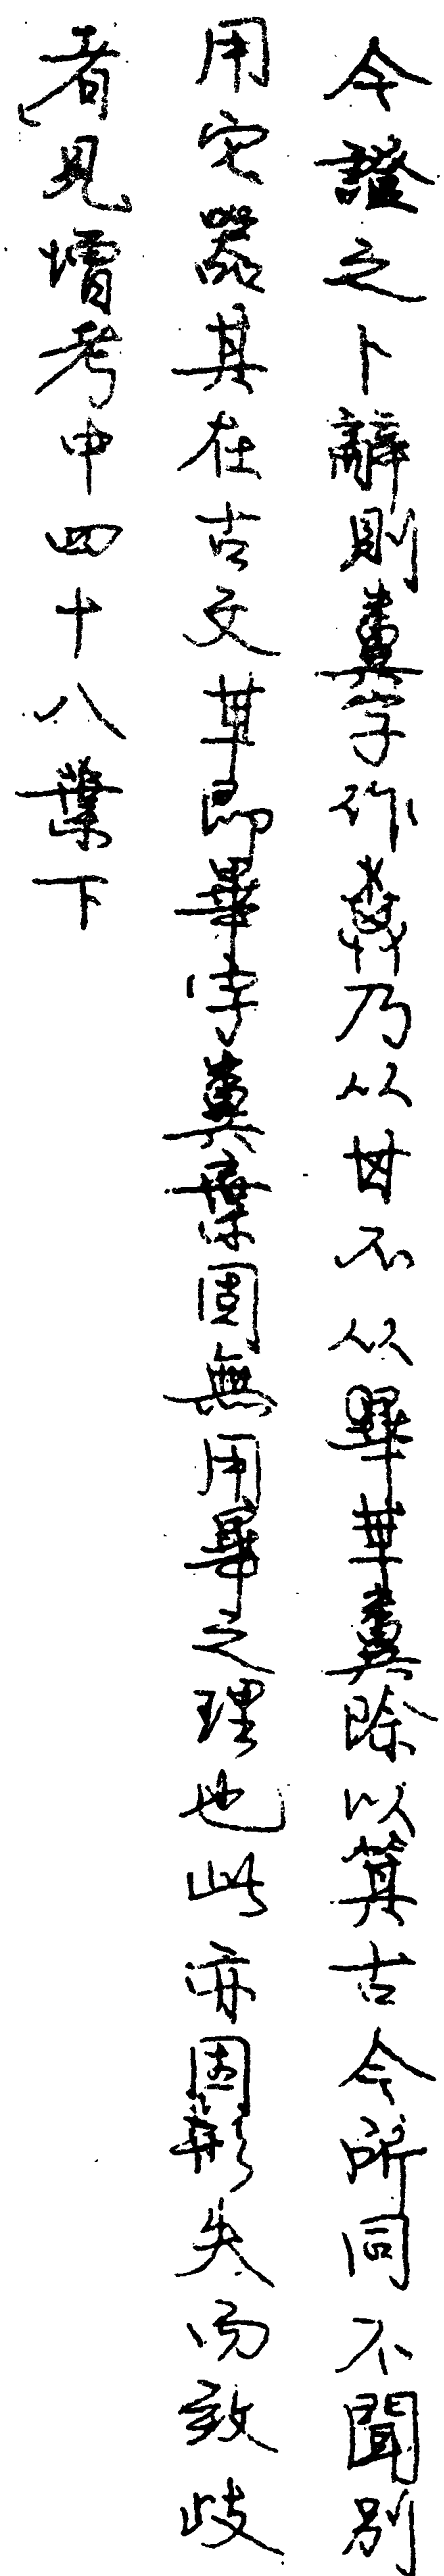 今證之卜辭則糞字作乃从𠀠不从畢𠦒糞除以箕古今所同不聞別
用它器其在古文𠦒即畢字糞棄固無用畢之理也此亦因形失而致歧
者見增考中四十八葉下